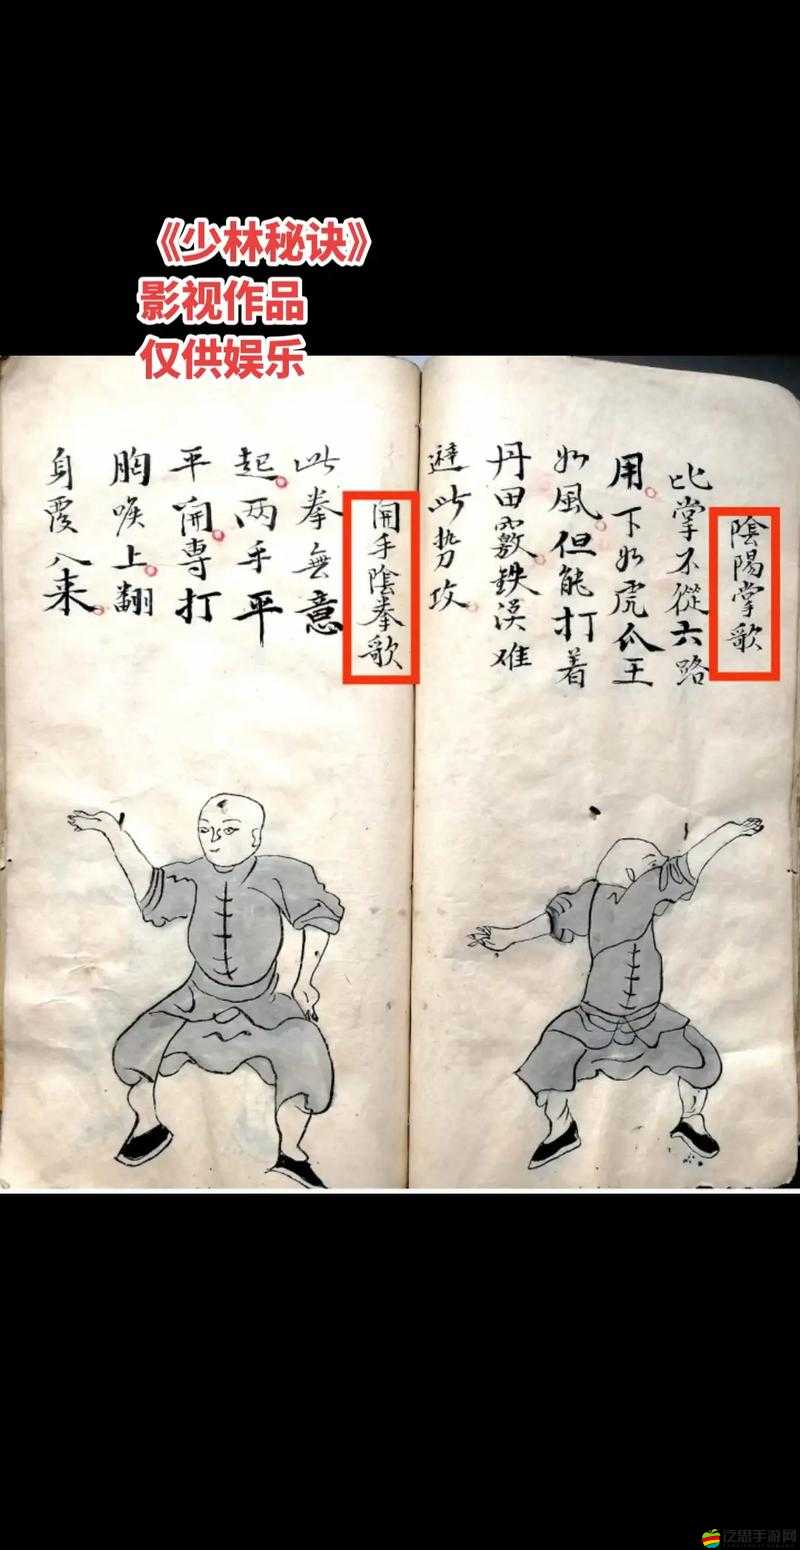 《少林秘诀》
影视作品
仅供娱乐
陰陽掌歌
此掌不從六路
用下如虎爪王
如風但能打着
丹田竅鉄漢难
避此势攻
開手陰拳歌
此拳無意
起两手平
平開專打
胸喉上翻
身覆八来
泛思手游网